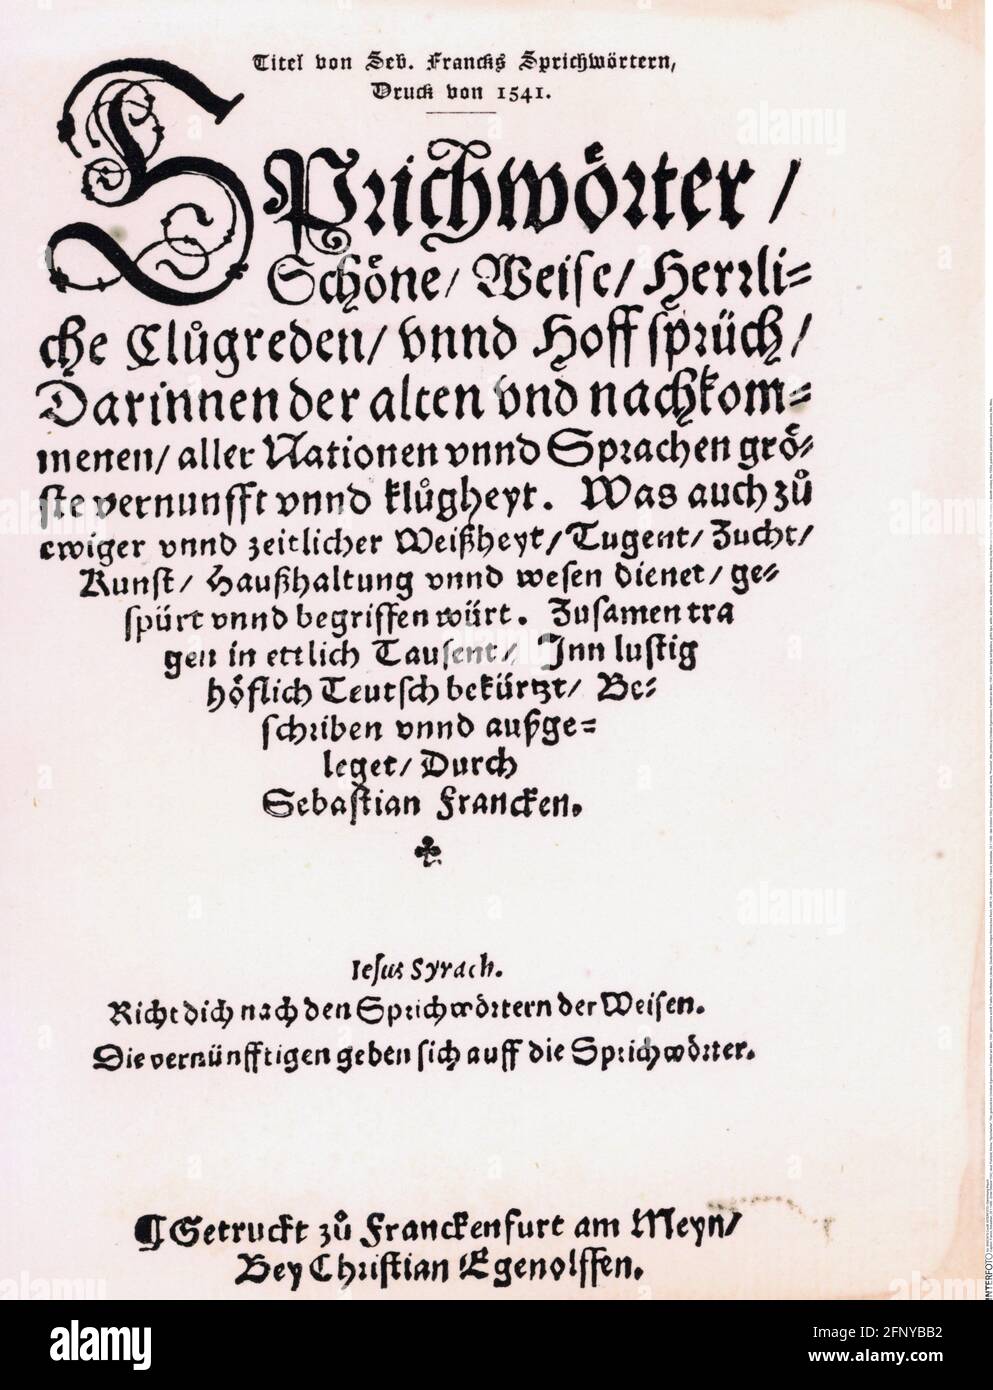 Titel von Seb. Francks Sprichwörtern,
Druck von 1541.
SPrichwoͤrter /
Schoͤne / Weise / Herrli=
che Cluͦgreden / vnnd Hoffsprüch /
Darinnen der alten vnd nachkom=
menen / aller Nationen vnnd Sprachen groͤ=
ste vernunfft vnnd kluͦgheyt. Was auch zuͦ
ewiger vnnd zeitlicher Weißheyt / Tugent / Zucht /
Kunst / Haußhaltung vnnd wesen dienet / ge=
spürt vnnd begriffen würt. Zusamen tra
gen in ettlich Tausent / Inn lustig
hoͤflich Teutsch bekürtzt / Be=
schriben vnnd außge=
leget / Durch
Sebastian Francken.
Iesus Syrach.
Richt dich nach den Sprichwoͤrtern der Weisen.
Die vernünfftigen geben sich auff die Sprichwoͤrter.
¶ Getruckt zuͦ Franckenfurt am Meyn /
Bey Christian Egenolffen.
INTERFOTO
alamy
Image ID: 2FNYBB2
www.alamy.com